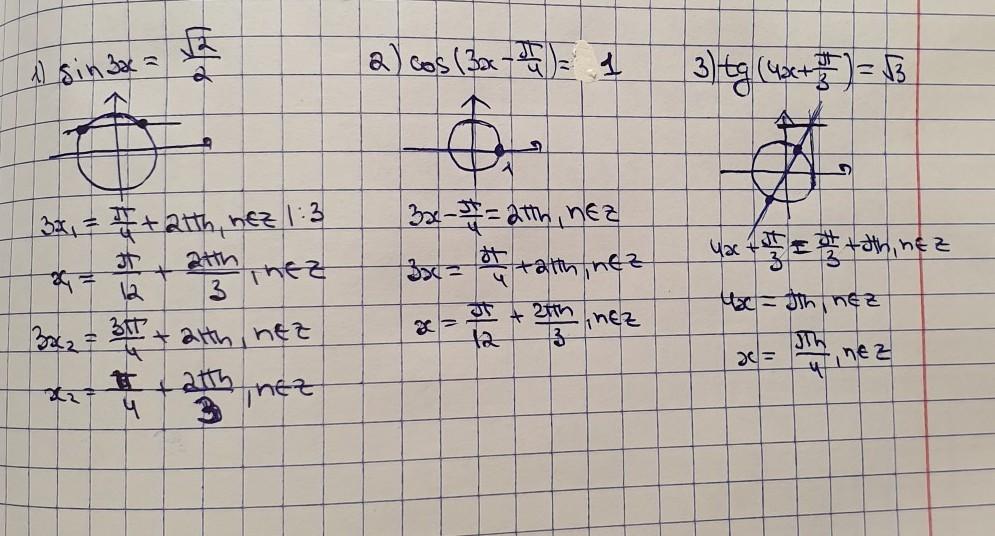 1) sin3x = √2/2
3x₁ = π/4 + 2πn, n∈Z |:3
x₁ = π/12 + 2πn/3, n∈Z
3x₂ = 3π/4 + 2πn, n∈Z
x₂ = π/4 + 2πn/3, n∈Z
2) cos(3x - π/4) = 1
1
3x - π/4 = 2πn, n∈Z
3x = π/4 + 2πn, n∈Z
x = π/12 + 2πn/3, n∈Z
3) tg(4x + π/3) = √3
4x + π/3 = π/3 + πn, n∈Z
4x = πn, n∈Z
x = πn/4, n∈Z